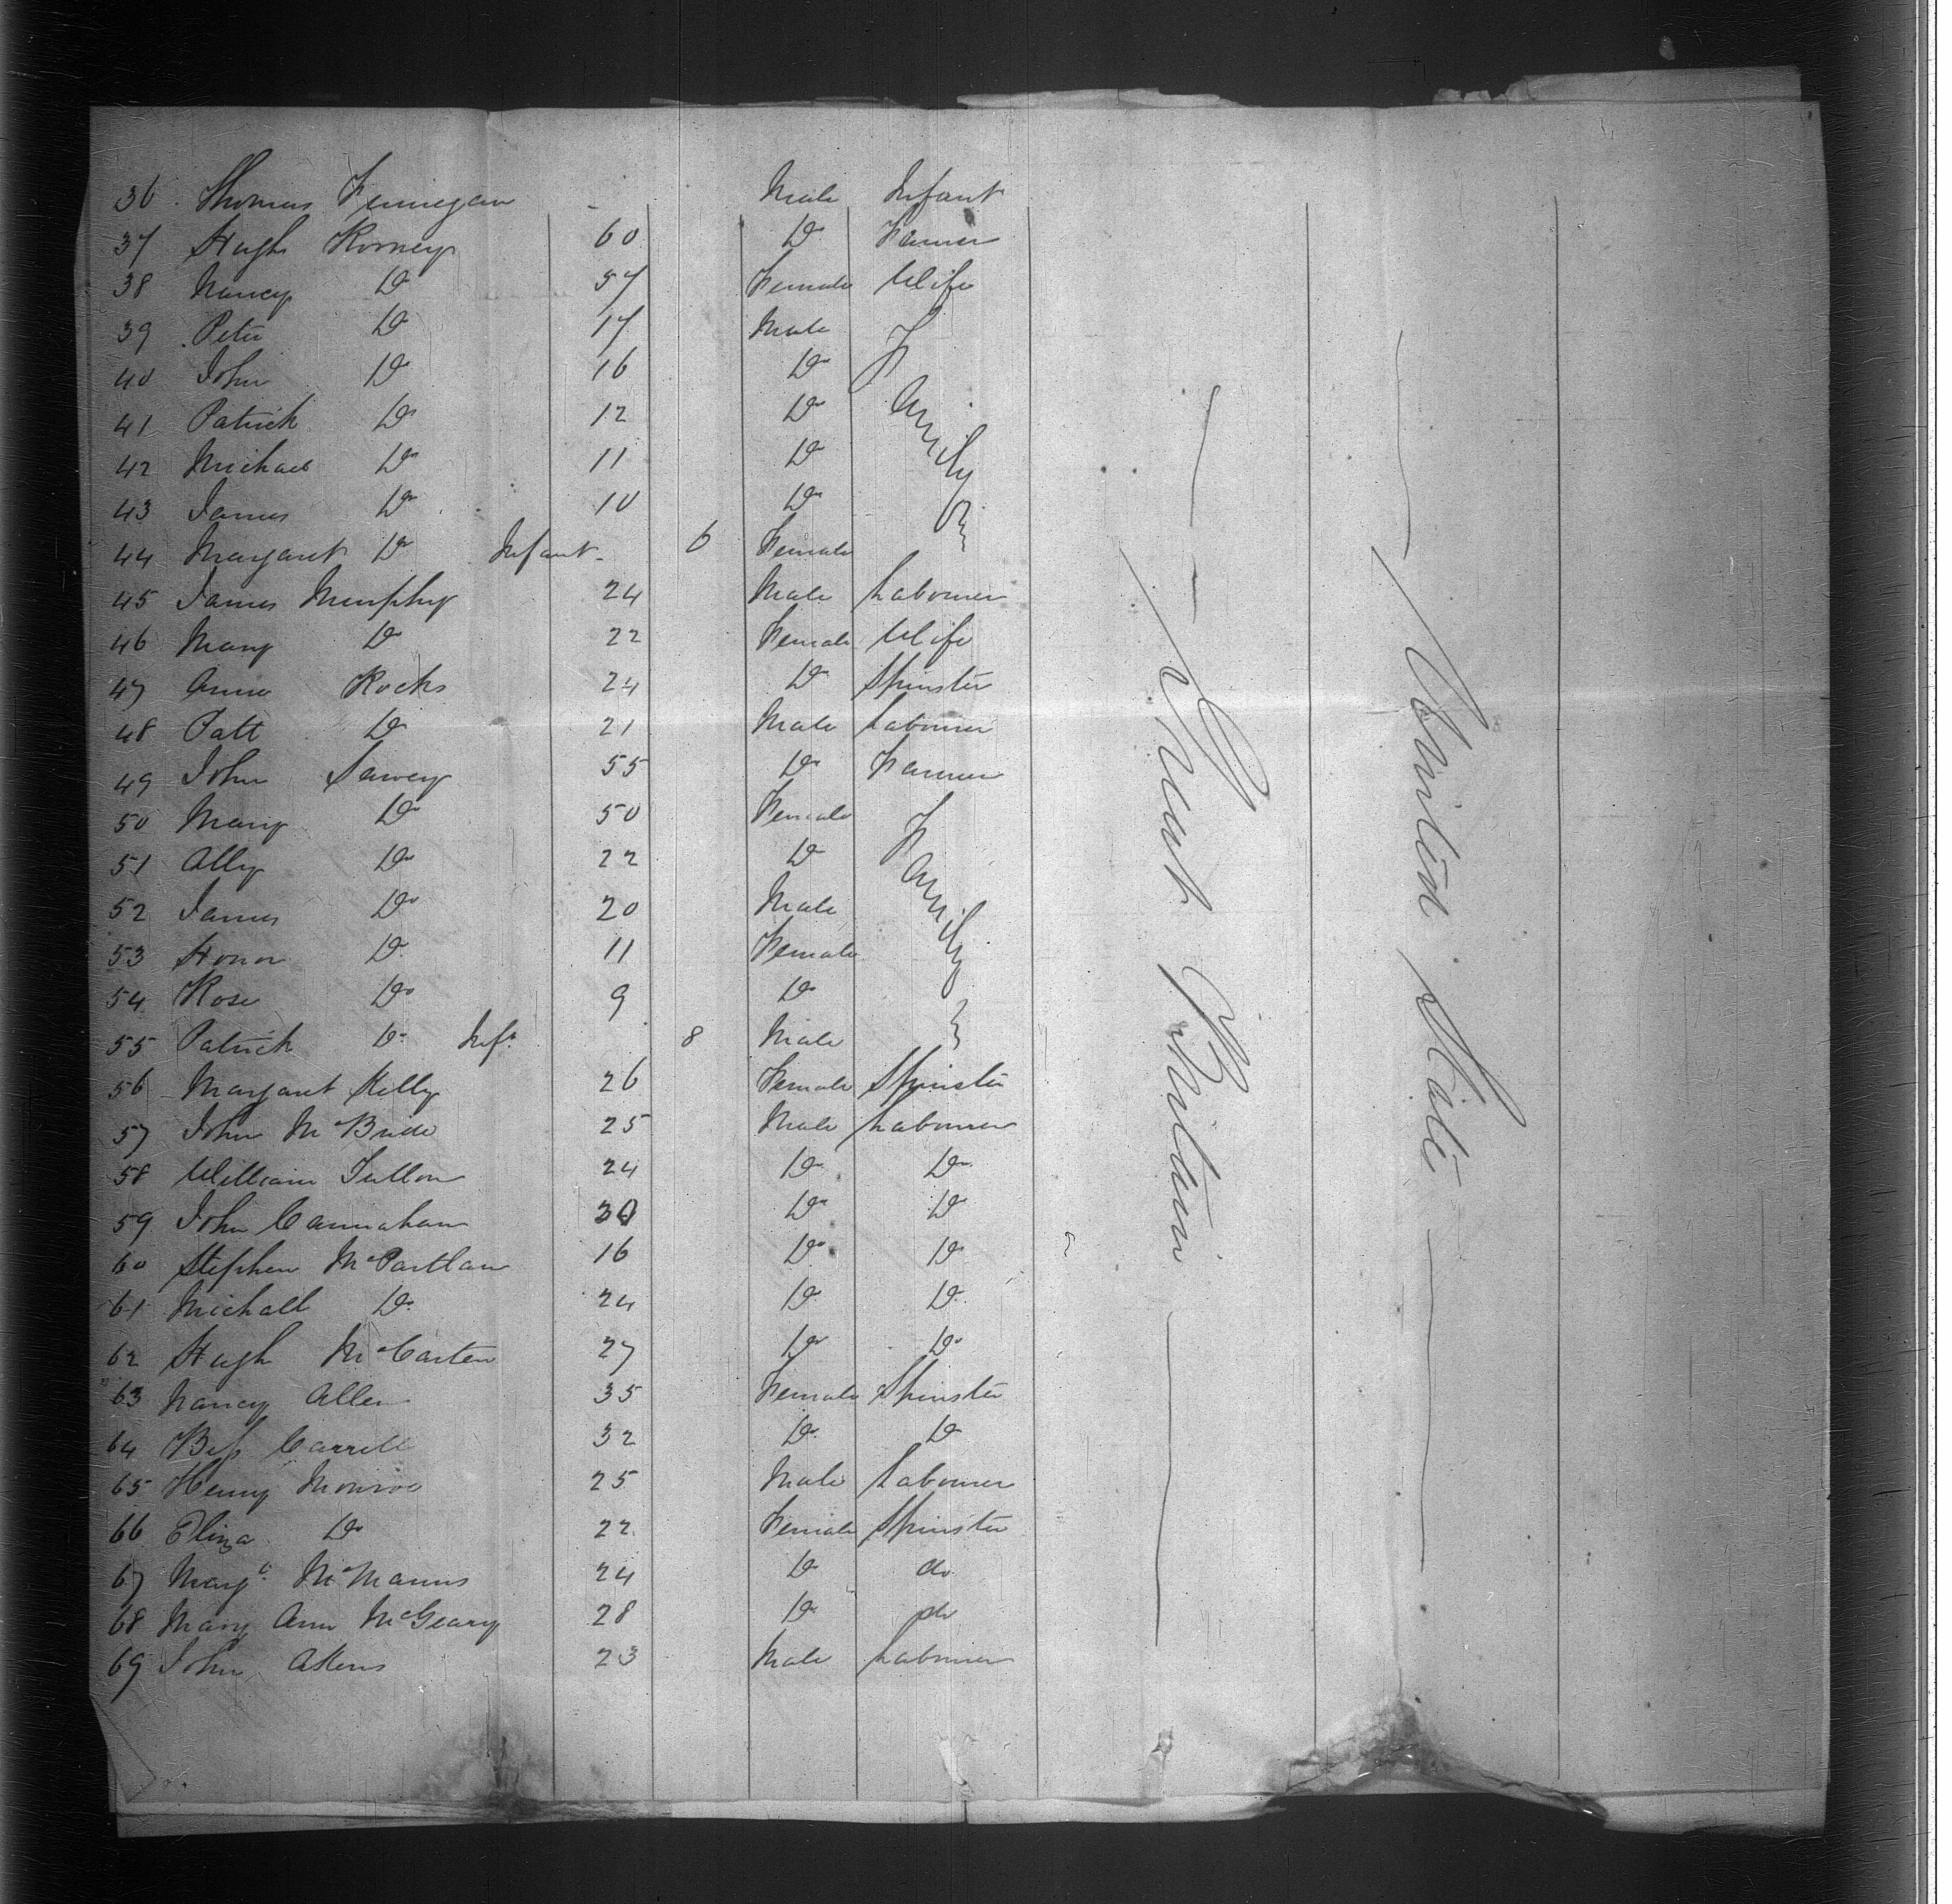 36 Thomas Finnegan - Male Infant
37 Hugh Romney 60 Do Farmer
38 Nancy Do 57 Female Wife
39 Peter Do 17 Male
40 John Do 16 Do
41 Patrick Do 12 Do
42 Michael Do 11 Do
43 James Do 10 Do
Family
44 Margaret Do Infant 6 Female
45 James Murphy 24 Male Labourer
46 Mary Do 22 Female Wife
47 Anne Rocks 24 Do Spinster
48 Patt Do 21 Male Labourer
49 John Savey 55 Do Farmer
50 Mary Do 50 Female
51 Ally Do 22 Do
52 James Do 20 Male
53 Honor Do 11 Female
54 Rose Do 9 Do
Family
55 Patrick Do Inft 8 Male
56 Margaret Kelly 26 Female Spinster
57 John McBride 25 Male Labourer
58 William Tullon 24 Do Do
59 John Cannahan 30 Do Do
60 Stephen McPartlan 16 Do Do
61 Michall Do 24 Do Do
62 Hugh McCarten 27 Do Do
63 Nancy Allen 35 Female Spinster
64 Bess Carrell 32 Do Do
65 Henry Monroe 25 Male Labourer
66 Eliza Do 22 Female Spinster
67 Margt McManus 24 Do do
68 Mary Ann McGeary 28 Do do
69 John Akens 23 Male Labourer
Great Britain
United States